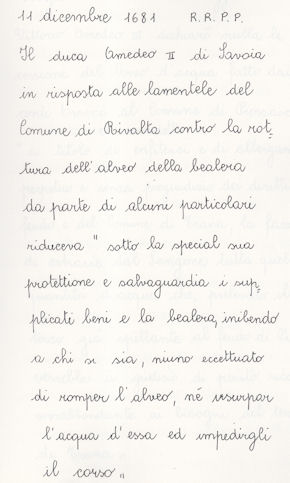 11 dicembre 1681 R.R.P.P.
Il duca Amedeo II di Savoia
in risposta alle lamentele del
Comune di Rivalta contro la rot=
tura dell'alveo della bealera
da parte di alcuni particolari
riduceva " sotto la special sua
protettione e salvaguardia i sup=
plicati beni e la bealera, inibendo
a chi si sia, niuno eccettuato
di romper l'alveo, né usurpar
l'acqua d'essa ed impedirgli
il corso "